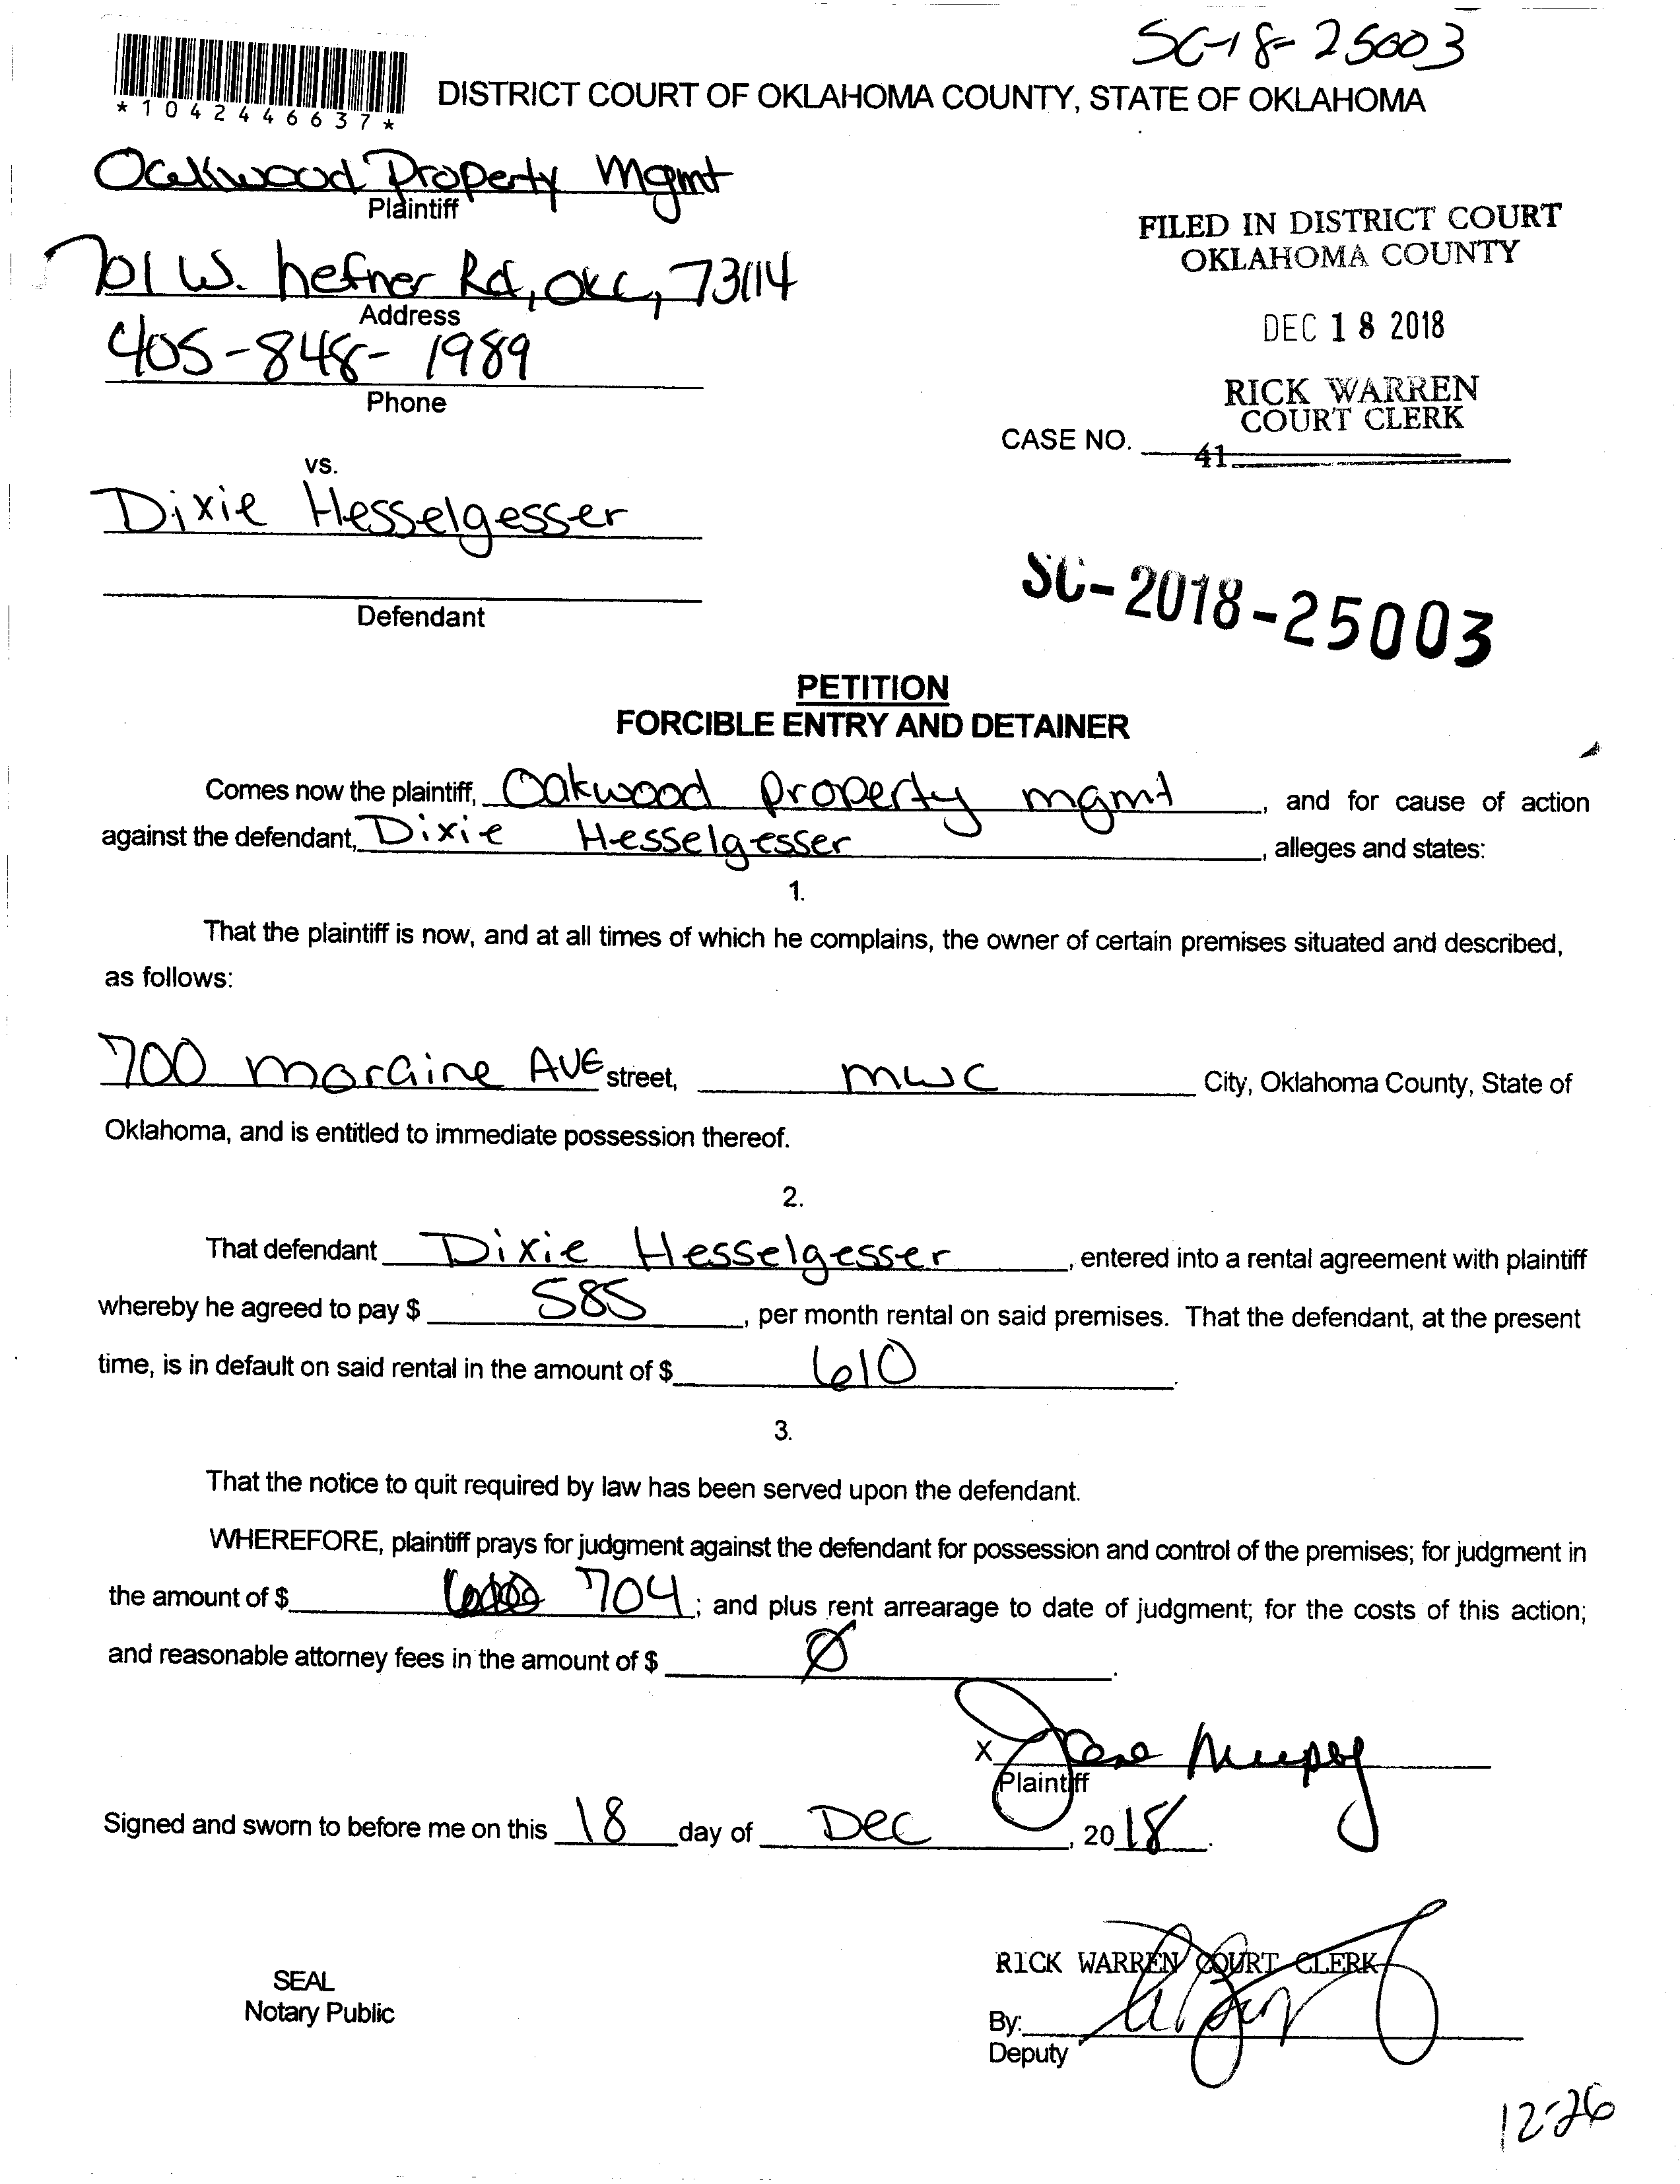 SC-18-25003
*1042446637*
DISTRICT COURT OF OKLAHOMA COUNTY, STATE OF OKLAHOMA
Oakwood Property Mgmt
Plaintiff
FILED IN DISTRICT COURT
OKLAHOMA COUNTY
701 W. hefner Rd, OKC, 73114
Address
DEC 18 2018
405-848-1989
Phone
RICK WARREN
COURT CLERK
CASE NO.
41
vs.
Dixie Hesselgesser
Defendant
SC-2018-25003
PETITION
FORCIBLE ENTRY AND DETAINER
Comes now the plaintiff, Oakwood property mgmt, and for cause of action
against the defendant, Dixie Hesselgesser, alleges and states:
1.
That the plaintiff is now, and at all times of which he complains, the owner of certain premises situated and described,
as follows:
700 moraine AVE street, MWC City, Oklahoma County, State of
Oklahoma, and is entitled to immediate possession thereof.
2.
That defendant Dixie Hesselgesser, entered into a rental agreement with plaintiff
whereby he agreed to pay $ 585, per month rental on said premises. That the defendant, at the present
time, is in default on said rental in the amount of $ 610.
3.
That the notice to quit required by law has been served upon the defendant.
WHEREFORE, plaintiff prays for judgment against the defendant for possession and control of the premises; for judgment in
the amount of $ 704; and plus rent arrearage to date of judgment; for the costs of this action;
and reasonable attorney fees in the amount of $ Ø.
X
Plaintiff
Signed and sworn to before me on this 18 day of Dec, 2018.
RICK WARREN COURT CLERK
SEAL
Notary Public
By:
Deputy
12-26